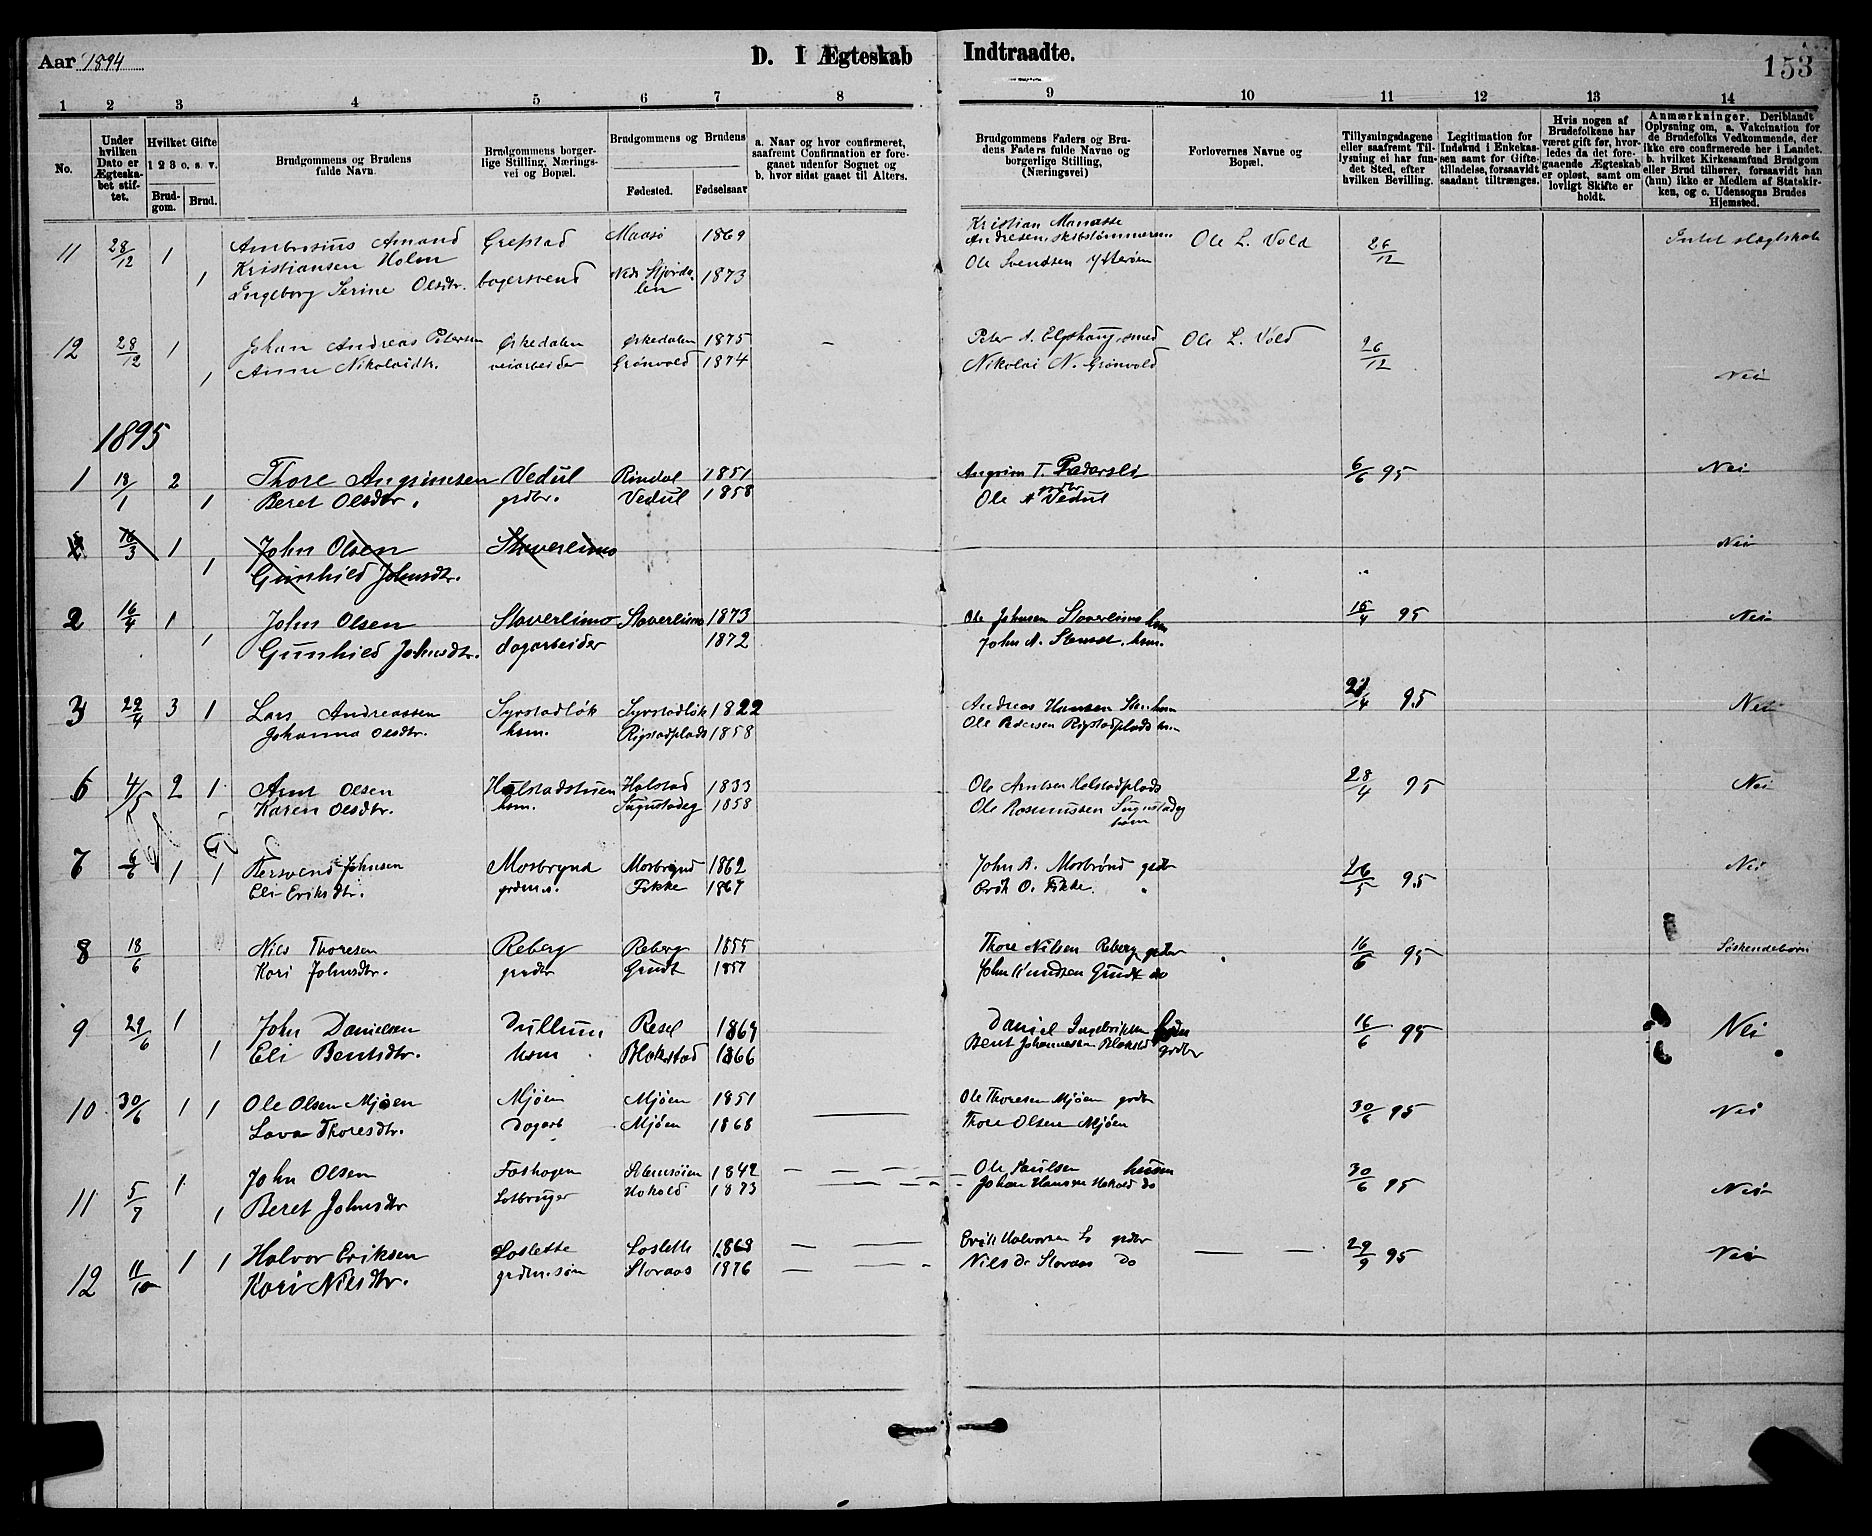 Aar 1894
D. I Ægteskab Indtraadte.
153
1 2 3 4 5 6 7 8 9 10 11 12 13 14
No.
Under hvilken Dato er Ægteskabet stiftet.
Hvilket Gifte
1 2 3 o. s. v.
Brudgom. Brud.
Brudgommens og Brudens fulde Navn.
Brudgommens borgerlige Stilling, Næringsvei og Bopæl.
Brudgommens og Brudens
Fødested. Fødselsaar
a. Naar og hvor confirmeret, saafremt Confirmation er foregaaet udenfor Sognet og b. hvor sidst gaaet til Alters.
Brudgommens Faders og Brudens Faders fulde Navne og borgerlige Stilling, (Næringsvei)
Forlovernes Navne og Bopæl.
Tillysningsdagene eller saafremt Tillysning ei har fundet Sted, efter hvilken Bevilling.
Legitimation for Indskud i Enkekassen samt for Giftetilladelse, forsaavidt saadant tiltrænges.
Hvis nogen af Brudefolkene har været gift før, hvorledes da det foregaaende Ægteskab er opløst, samt om lovligt Skifte er holdt.
Anmærkninger. Deriblandt Oplysning om, a. Vakcination for de Brudefolks Vedkommende, der ikke ere confirmerede her i Landet. b. hvilket Kirkesamfund Brudgom eller Brud tilhører, forsaavidt han (hun) ikke er Medlem af Statskirken, og c. Udensogns Brudes Hjemsted.
11 28/12 1 Ambrosius Amand Grefstad Maasø 1869 Kristian Manasse Andresen, skibstømmerm. Ole L. Vold 26/12 Intet slægtskab
Kristiansen Holm
1 Ingeborg Serine Olsdtr. bagersvend Ned. Stjørdalen 1873 Ole Svendsen Ytterøen
12 28/12 1 Johan Andreas Petersen Ørkedalen Ørkedalen 1875 - Peter A. Elfshaug smed Ole L. Vold 26/12
1 Anne Nikolaidtr. veiarbeider Grønvold 1874 Nikolai N. Grønvold Nei
1895
1 18/1 2 Thore Angrimsen Vedul Rindal 1851 Angrim T. Fædarsli 6/6 95 Nei
1 Beret Olsdtr. grdbr. Vedul 1858 Ole A Vedul grdbr
2 16/3 1 John Olsen Staverlimo Nei
1 Gunhild Johnsdtr.
2 16/4 1 John Olsen Staverlimo Staverlimo 1873 Ole Johnsen Staverlimo hsm 15/4 95 Nei
1 Gunhild Johnsdtr. dagarbeider 1872 John A. Stemst. hsm.
3 22/4 3 1 Lars Andreassen Syrstadløk Syrstadløk 1822 Andreas Hansen Sten hsm 21/4 95 Nei
Johanna Olsdtr. hsm. Rigstadplads 1858 Ole Pedersen Rigstadplads hsm
6 4/5 2 1 Arnt Olsen Halstadstuen Halstad 1833 Ole Arntsen Halstadplads 28/4 95 Nei
Karen Olsdtr. hsm. Sugustadeg 1858 Ole Rasmussen Sugustadeg hsm
7 6/6 1 1 Bersvend Johnsen Mosbrynd Mosbrynd 1862 John B. Mosbrønd grdbr 26/5 95 Nei
Eli Eriksdtr. grdm.s. Fikke 1869 Erik O. Fikke. "
8 18/6 Nils Thoresen Reberg Reberg 1855 Thore Nilsen Reberg grdbr 16/6 95 Søskendebørn
Kari Johnsdtr. grdbr Grudt 1857 John Knudsen Grudt do
9 29/6 1 John Danielsen Dullum Resel 1869 Daniel Ingebriktsen 16/6 95 Nei
1 Eli Bentsdtr. hsm Blokstad 1866 Bent Johannessen Blokstad grdbr
10 30/6 1 1 Ole Olsen Mjøen Mjøen Mjøen 1851 Ole Thoresen Mjøen grdbr 30/6 95 Nei
Lava Thoresdtr. Dagarb Mjøen 1868 Thore Olsen Mjøen
11 5/7 1 John Olsen Foshagen Stemsøien 1842 Ole Paulsen husm 30/6 95 Nei
1 Beret Johnsdtr Lotbruger Hokold 1873 Johan Hansen Hokold do
12 11/10 1 1 Halvor Eriksen Loslette Loslette 1868 Erik Halvorsen L grdbr 29/9 95 Nei
Kari Nilsdtr. grdm.søn Storaas 1876 Nils D. Storaas do